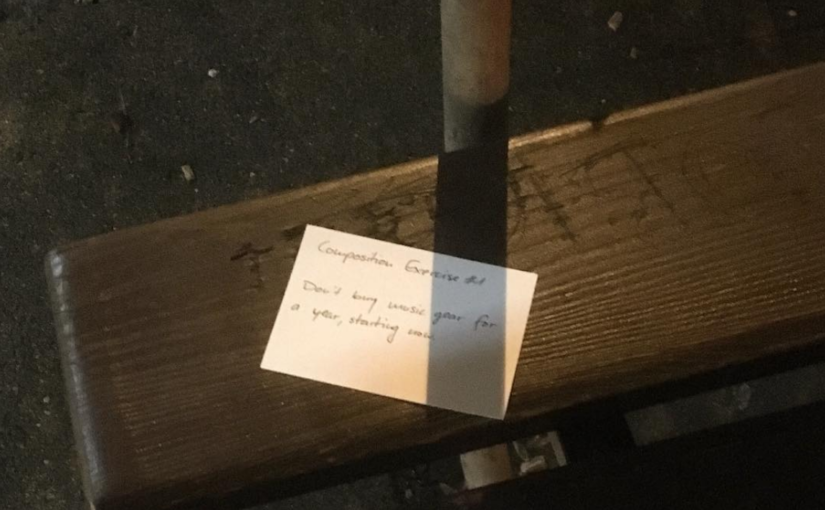 Composition Exercise #1
Don't buy music gear for
a year, starting now